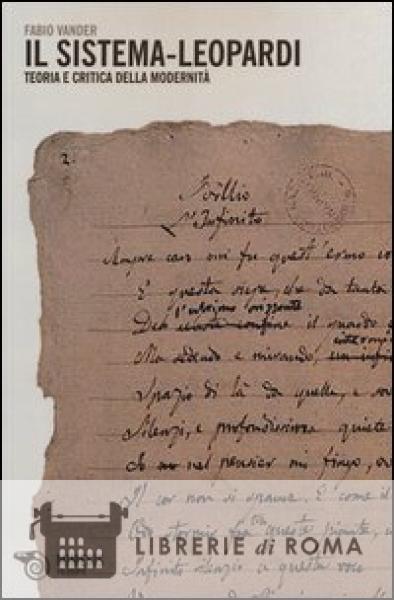 FABIO VANDER
IL SISTEMA-LEOPARDI
TEORIA E CRITICA DELLA MODERNITÀ
2.
Idillio
L'Infinito
Sempre caro mi fu quest'ermo co
E questa siepe, che da tanta
l'ultimo orizzonte
Del celeste confine il guardo
Ma sedendo e mirando, un infini
Spazio di là da quella, e sov
Silenzi, e profondissima quiete
Io nel pensier mi fingo, ov
Il cor non si spaura. E come il
Odo stormir tra queste piante,
Infinito silenzio a questa voce
LIBRERIE di ROMA